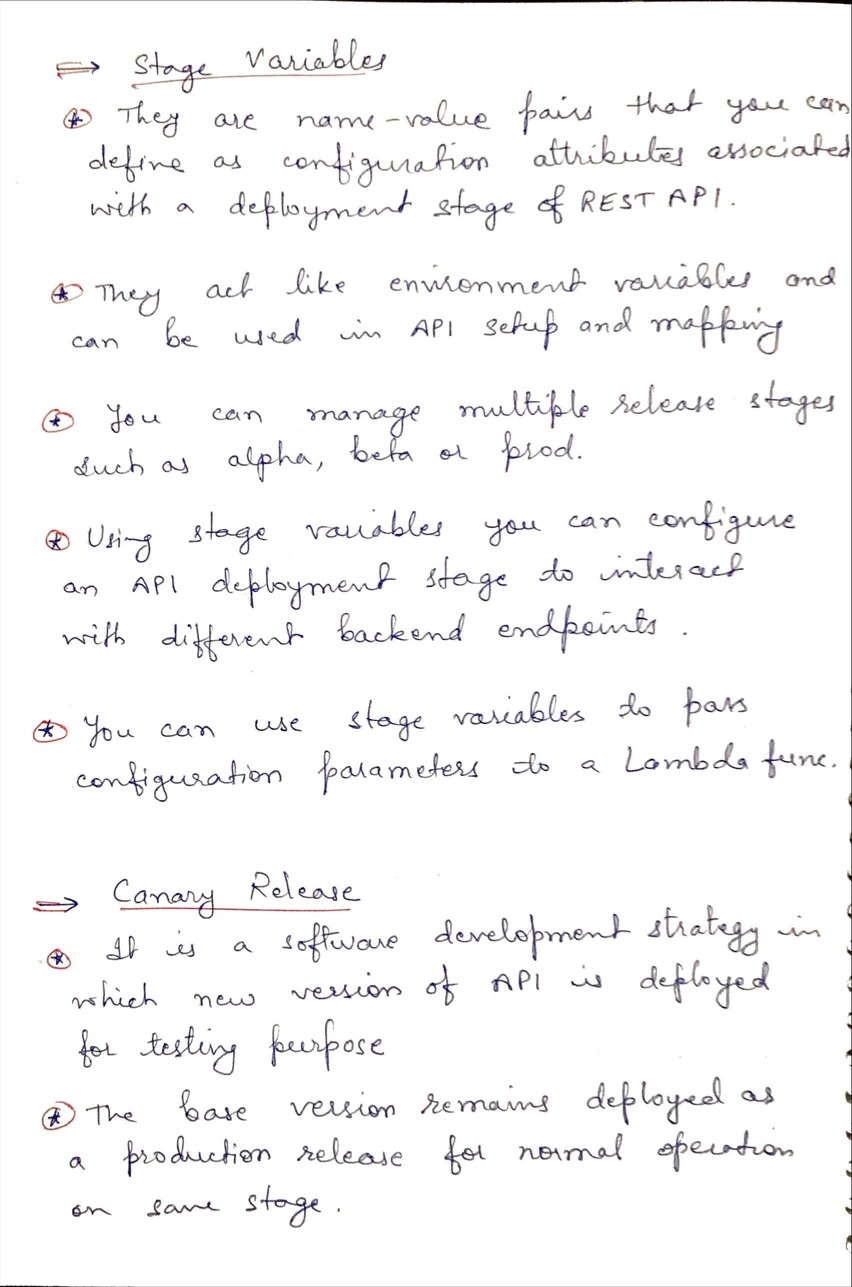 ⇒ Stage Variables
⊛ They are name-value pairs that you can
define as configuration attributes associated
with a deployment stage of REST API.
⊛ They act like environment variables and
can be used in API setup and mapping
⊛ You can manage multiple release stages
such as alpha, beta or prod.
⊛ Using stage variables you can configure
an API deployment stage to interact
with different backend endpoints.
⊛ You can use stage variables to pass
configuration parameters to a Lambda func.
⇒ Canary Release
⊛ It is a software development strategy in
which new version of API is deployed
for testing purpose
⊛ The base version remains deployed as
a production release for normal operation
on same stage.